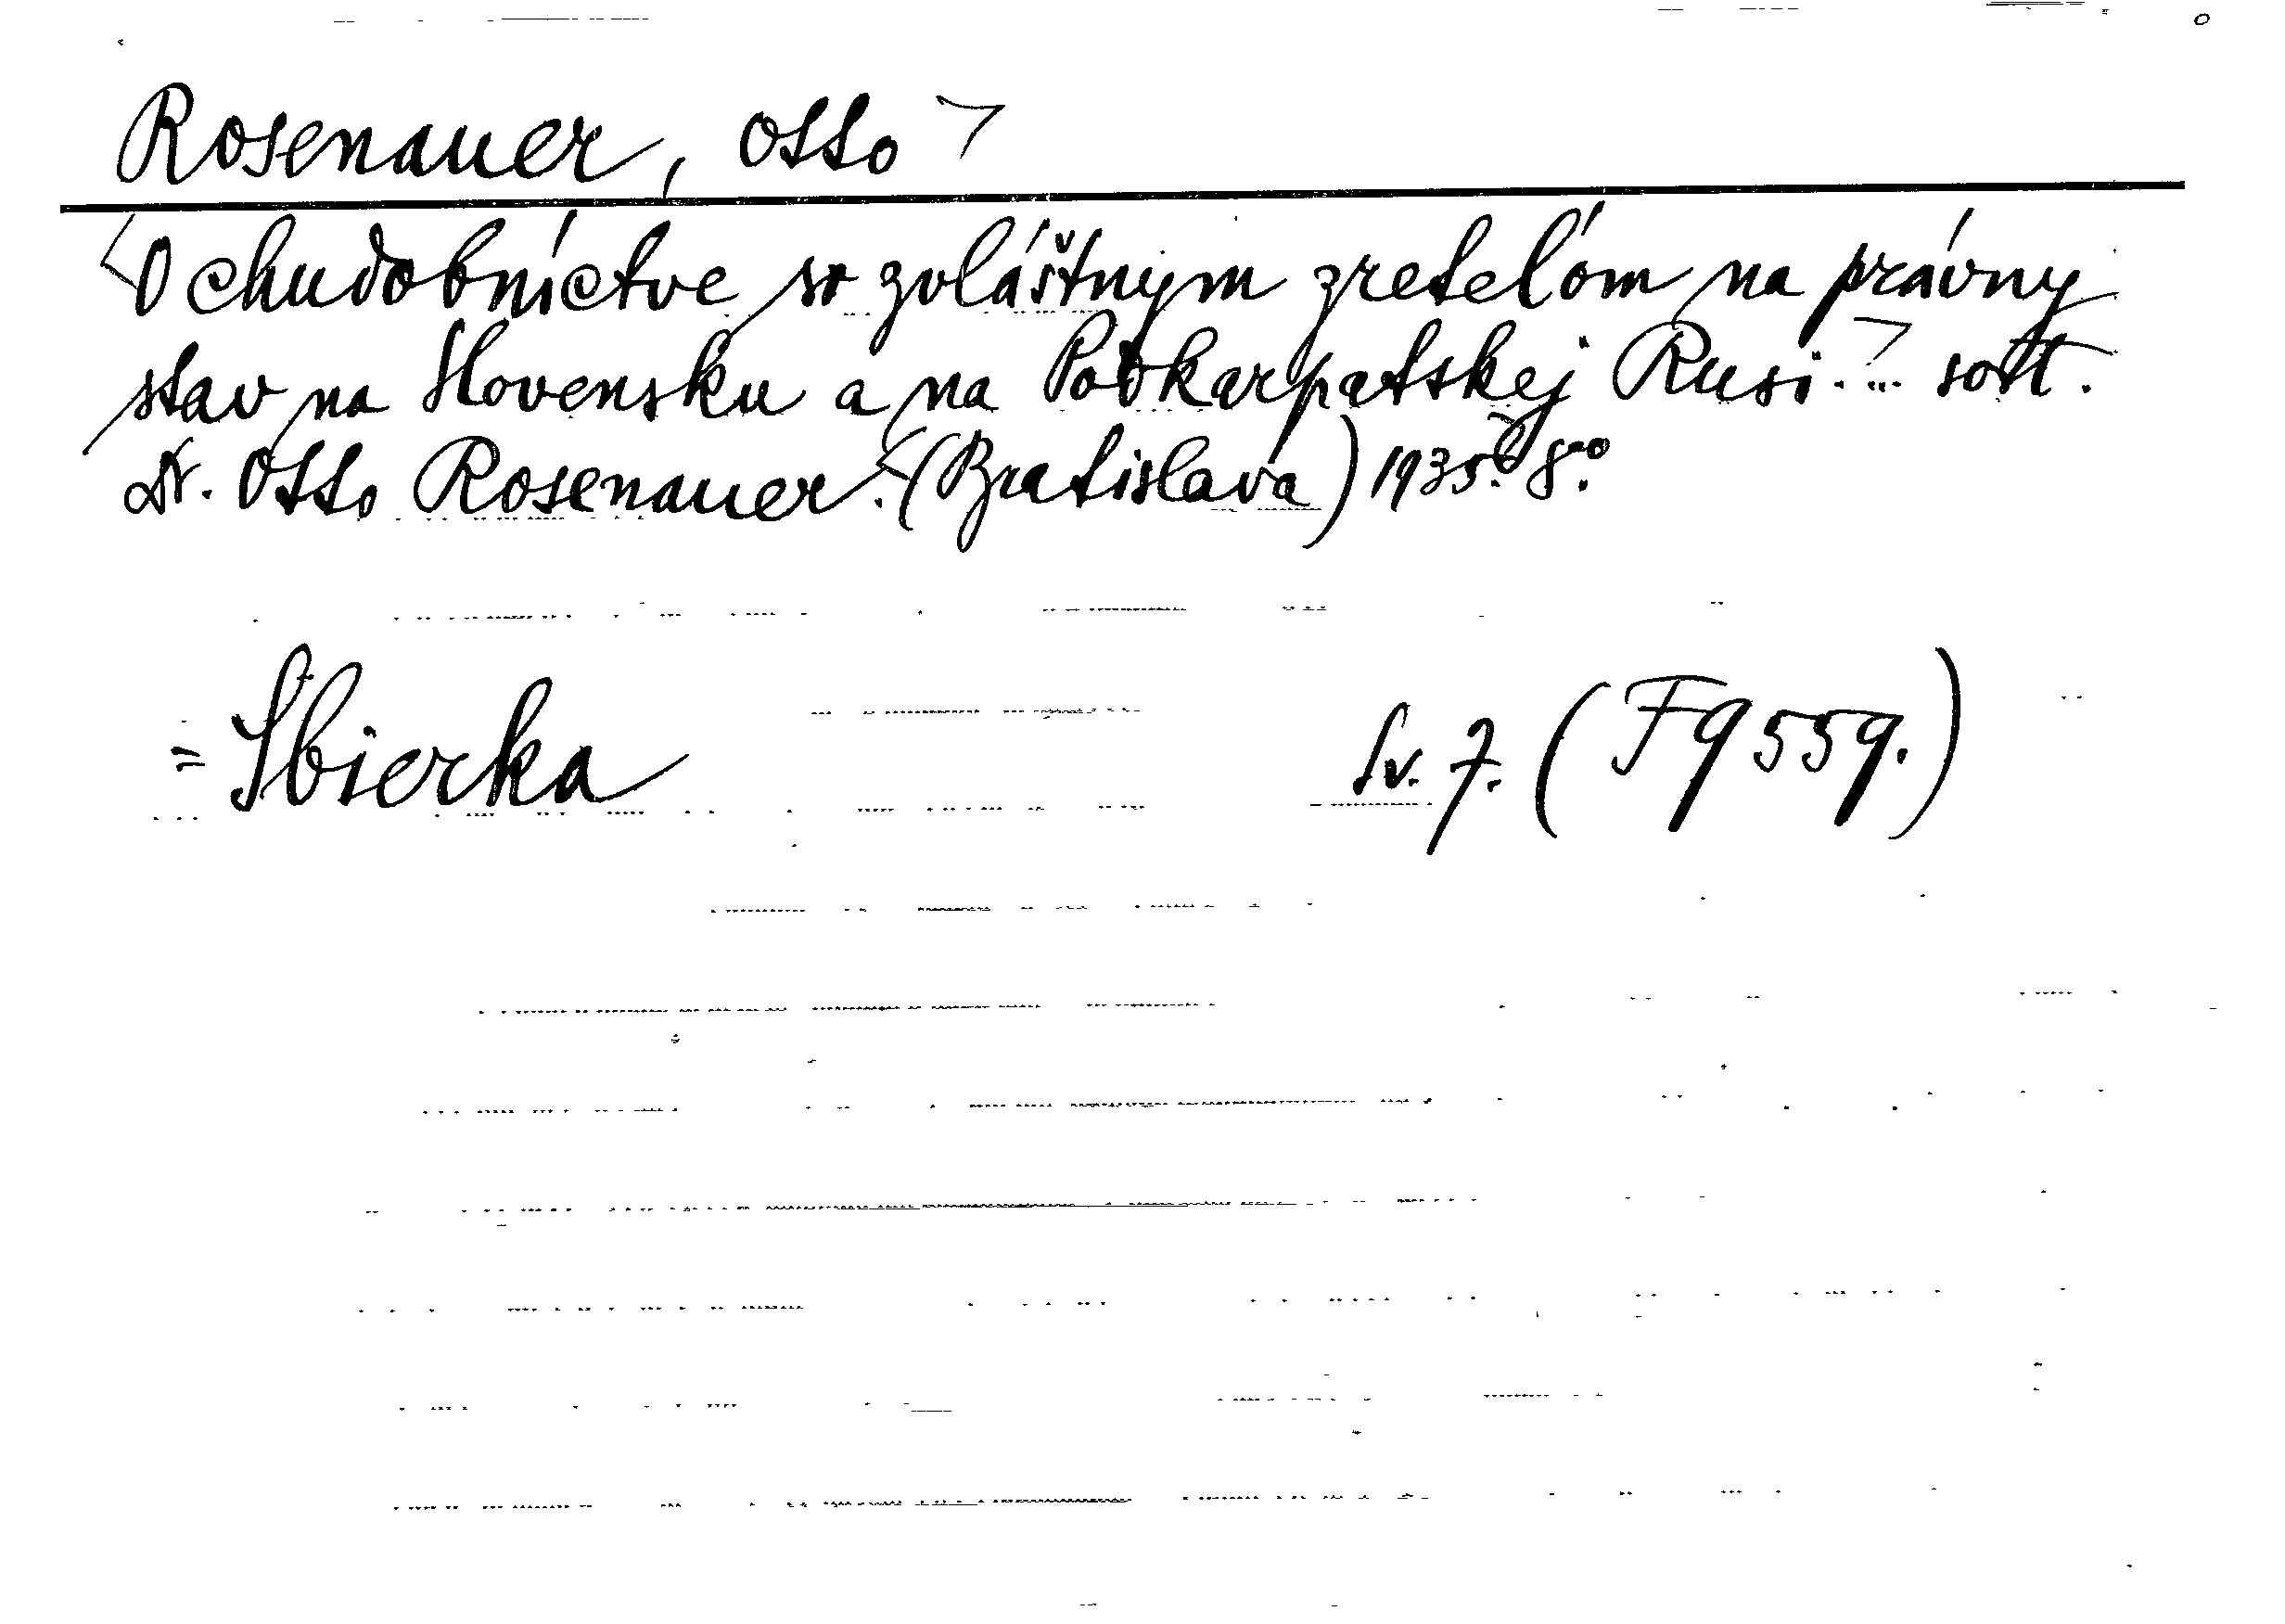 Rosenauer, Otto
O chudobníctve so zvláštnym zreteľom na právny
stav na Slovensku a na Podkarpatskej Rusi. ...
Dr. Otto Rosenauer. (Bratislava) 1935. 8°.
= Sbierka Sv. 7. (F 9559.)